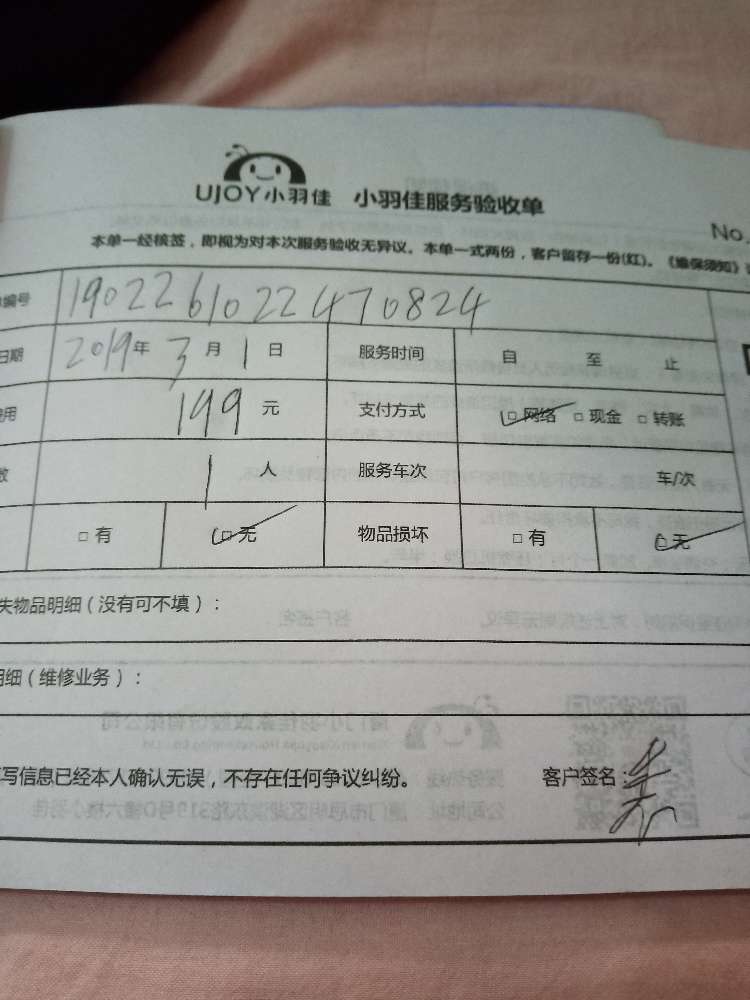 UJOY小羽佳 小羽佳服务验收单
No.
本单一经核签，即视为对本次服务验收无异议。本单一式两份，客户留存一份(红)。《维保须知》
编号 190226102247 0824
日期 2019年 3月 1日 服务时间 自 至 止
用 199元 支付方式 □网络 □现金 □转账
数 1人 服务车次 车/次
□有 □无 物品损坏 □有 □无
失物品明细（没有可不填）：
明细（维修业务）：
写信息已经本人确认无误，不存在任何争议纠纷。 客户签名：